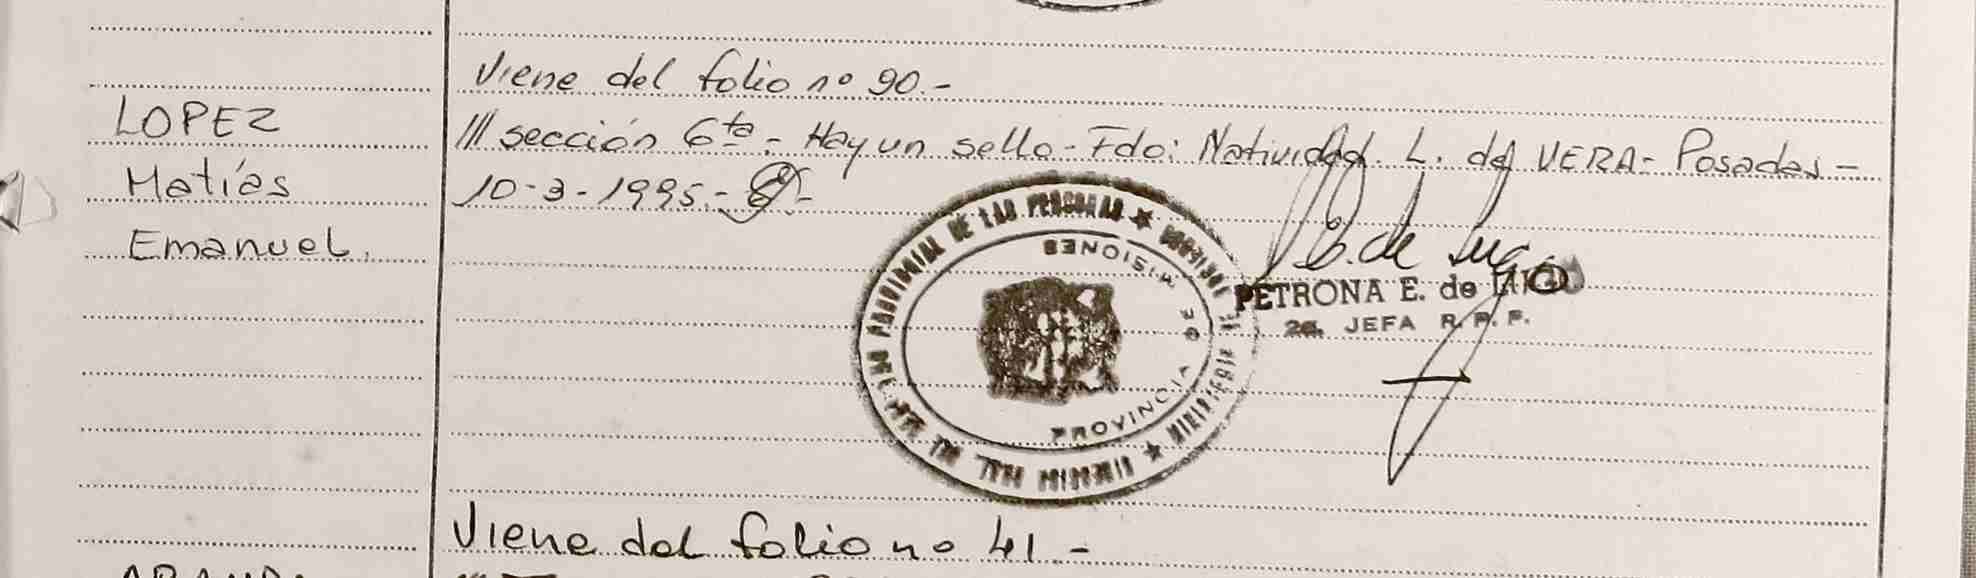 Viene del folio nº 90.-
LOPEZ
Matías
Emanuel.
/// sección 6ta.- Hay un sello- Fdo: Natividad L. de VERA- Posadas-
10-3-1995.-
PROVINCIAL DE LAS PERSONAS ★
PROVINCIA DE MISIONES
PETRONA E. de LUGO
2a. JEFA R. P. P.
Viene del folio no 41.-